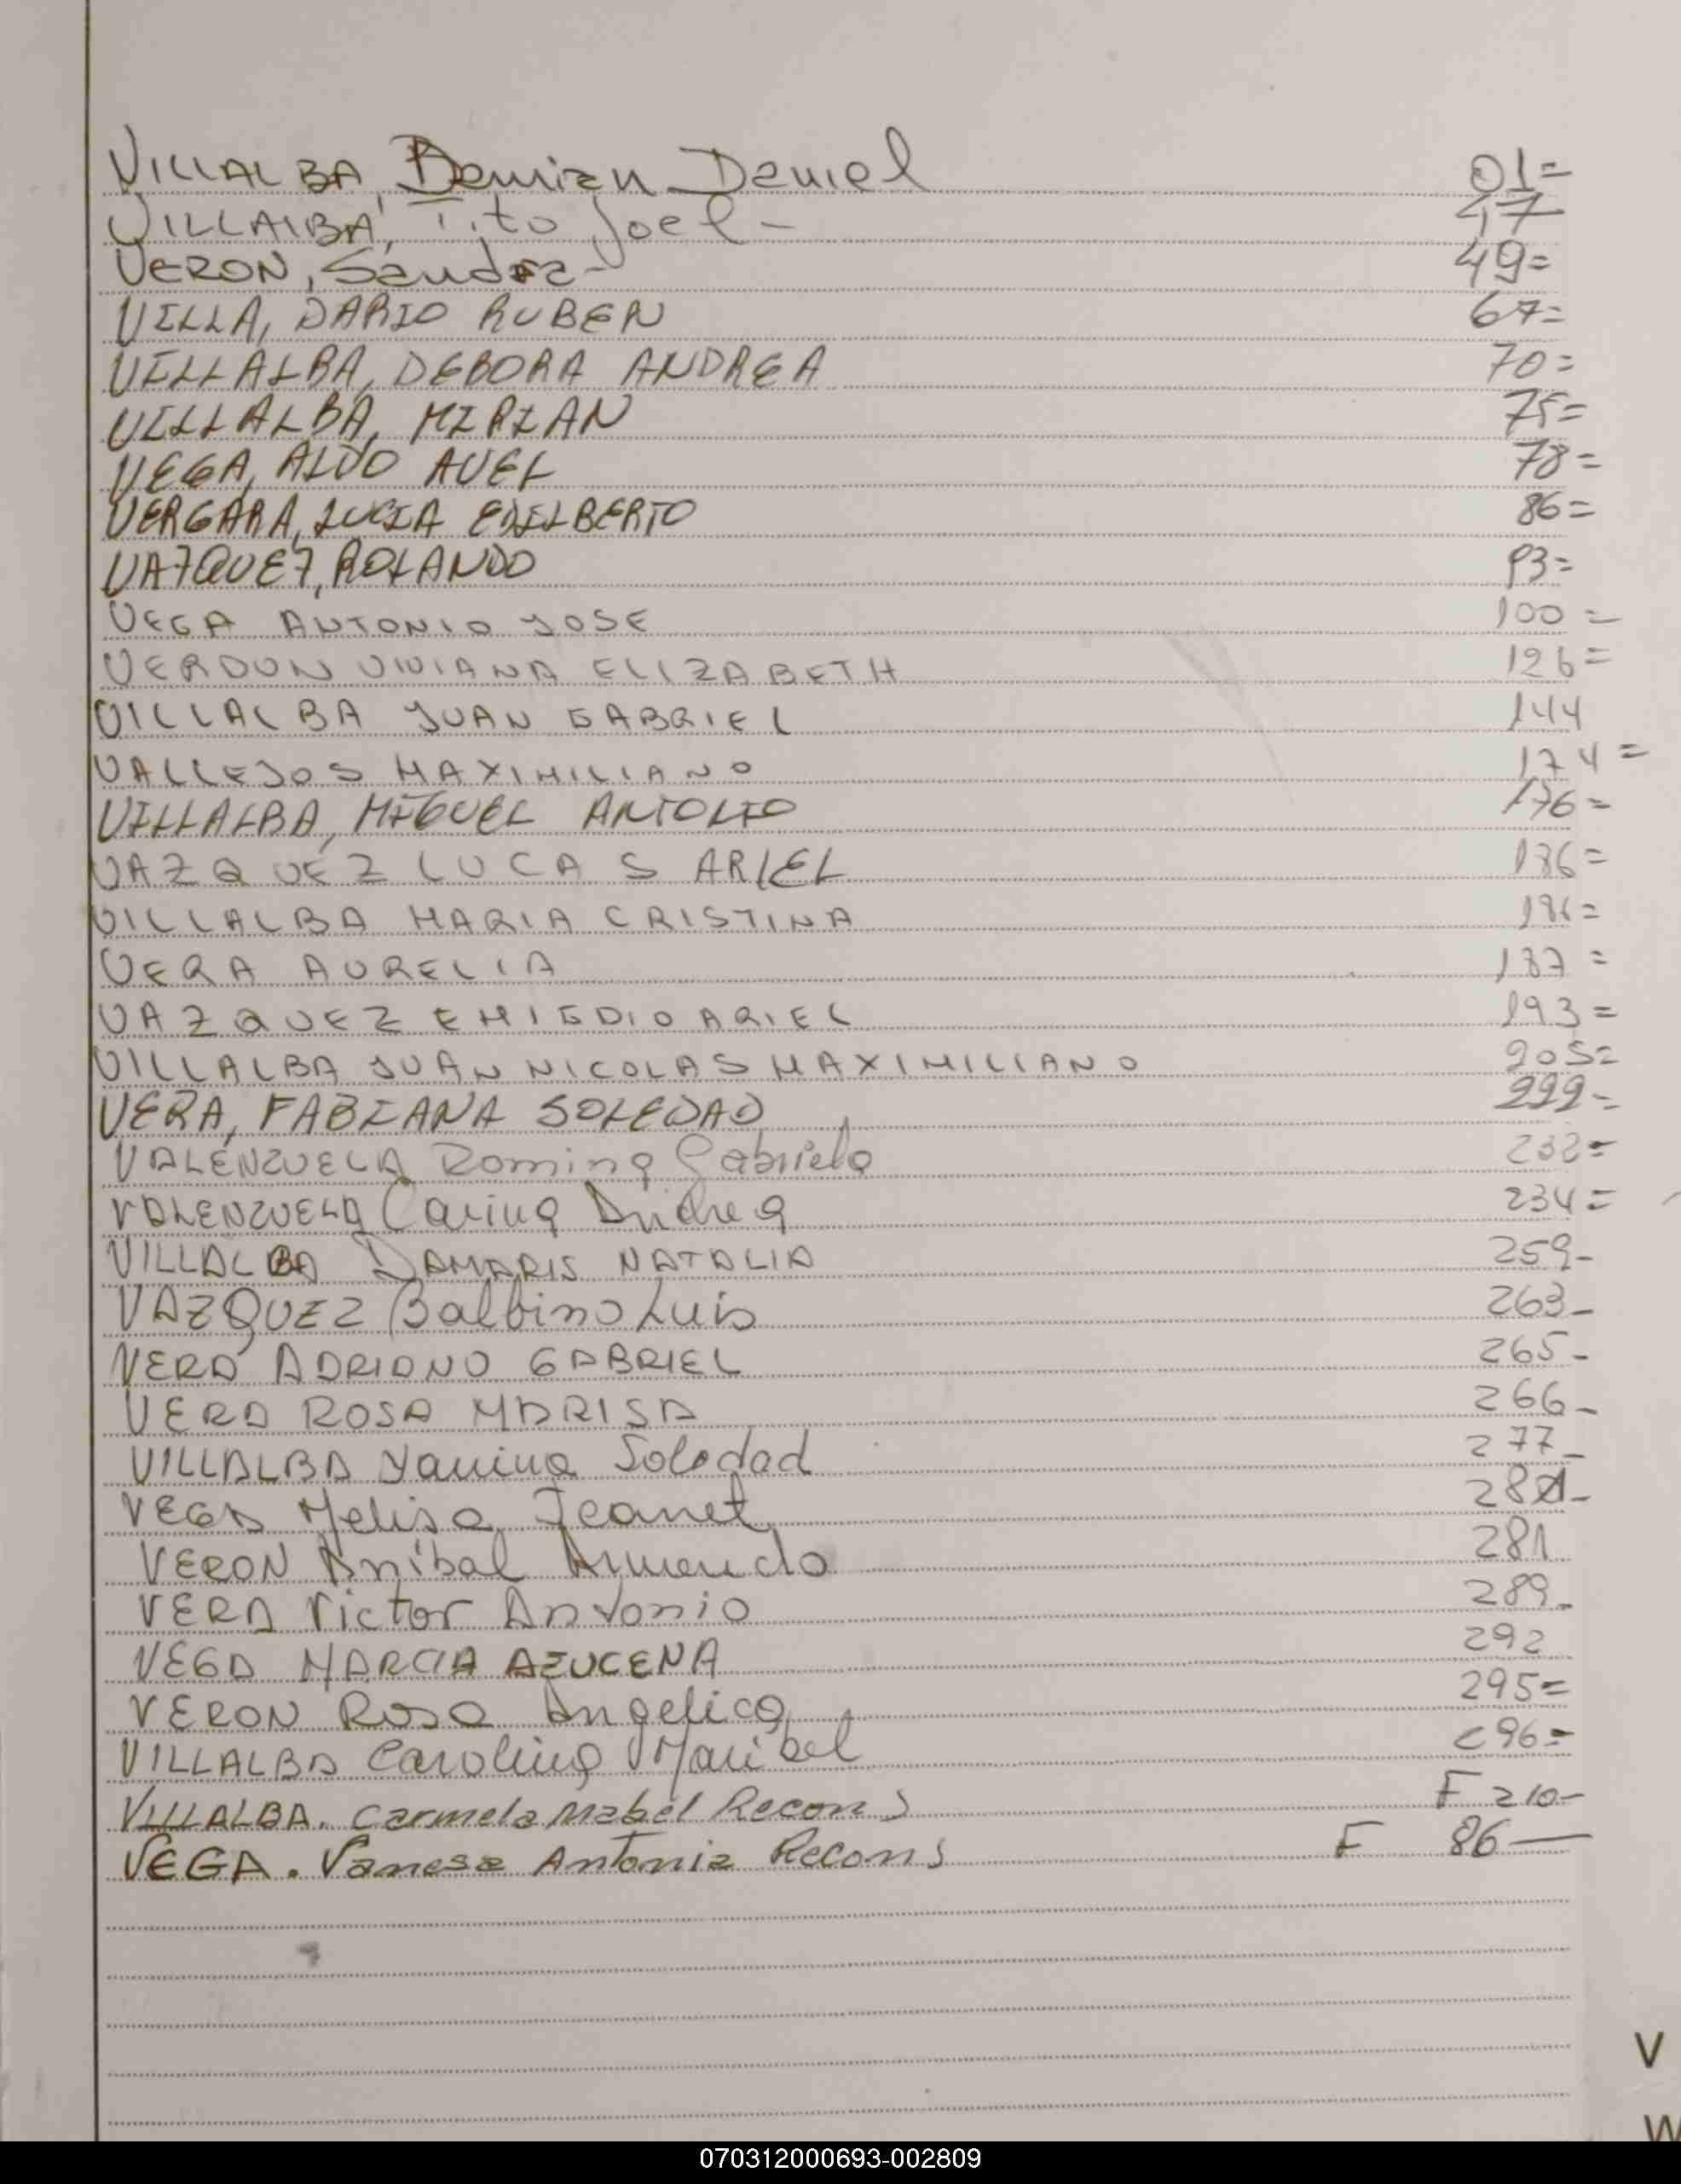 VILLALBA, Demian Daniel 01=
VILLALBA, Tito Joel - 47
VERON, Sandra - 49=
VILLA, DARIO RUBEN 67=
VILLALBA, DEBORA ANDREA 70=
VILLALBA, MIRIAN 75=
VEGA, ALDO AVEL 78=
VERGARA, LUCIA EDILBERTO 86=
VAZQUEZ, ROLANDO 93=
VEGA ANTONIO JOSE 100=
VERDUN VIVIANA ELIZABETH 126=
VILLALBA JUAN GABRIEL 144
VALLEJOS MAXIMILIANO 174=
VILLALBA, MIGUEL ANTOLIO 176=
VAZQUEZ LUCAS ARIEL
VILLALBA MARIA CRISTINA
VERA AURELIA 187=
VAZQUEZ EMIGDIO ARIEL 193=
VILLALBA JUAN NICOLAS MAXIMILIANO 205=
VERA, FABIANA SOLEDAD 222-
VALENZUELA Romina Gabriela 232=
VALENZUELA Carina Andrea 234=
VILLALBA DAMARIS NATALIA 259-
VAZQUEZ Balbino Luis 263-
VERA ADRIANO GABRIEL 265-
VERA ROSA MARISA 266-
VILLALBA Yanina Soledad 277-
VEGA Melisa Jeanet
VERON Anibal Armando 281
VERA Victor Antonio 289-
VEGA MARCIA AZUCENA 292
VERON Rosa Angelica 295=
VILLALBA Carolina Maribel 296=
VILLALBA. Carmela Mabel Recons F 210-
VEGA. Vanesa Antonia Recons F 86-
V
W
070312000693-002809